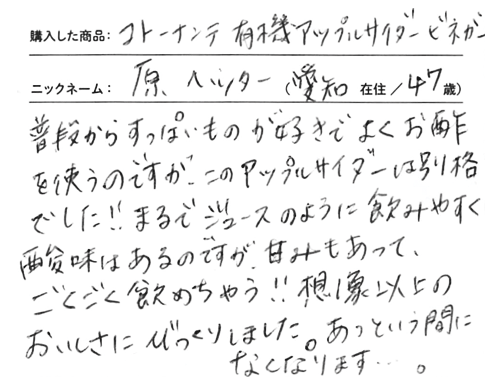 購入した商品: コトーナンテ 有機アップルサイダービネガー
ニックネーム: 原 ヘンター (愛知 在住/47歳)
普段からすっぱいものが好きでよくお酢
を使うのですが、このアップルサイダーは別格
でした!! まるでジュースのように飲みやすく
酸味はあるのですが、甘みもあって、
ごくごく飲めちゃう!! 想像以上の
おいしさにびっくりしました。あっという間に
なくなります…。